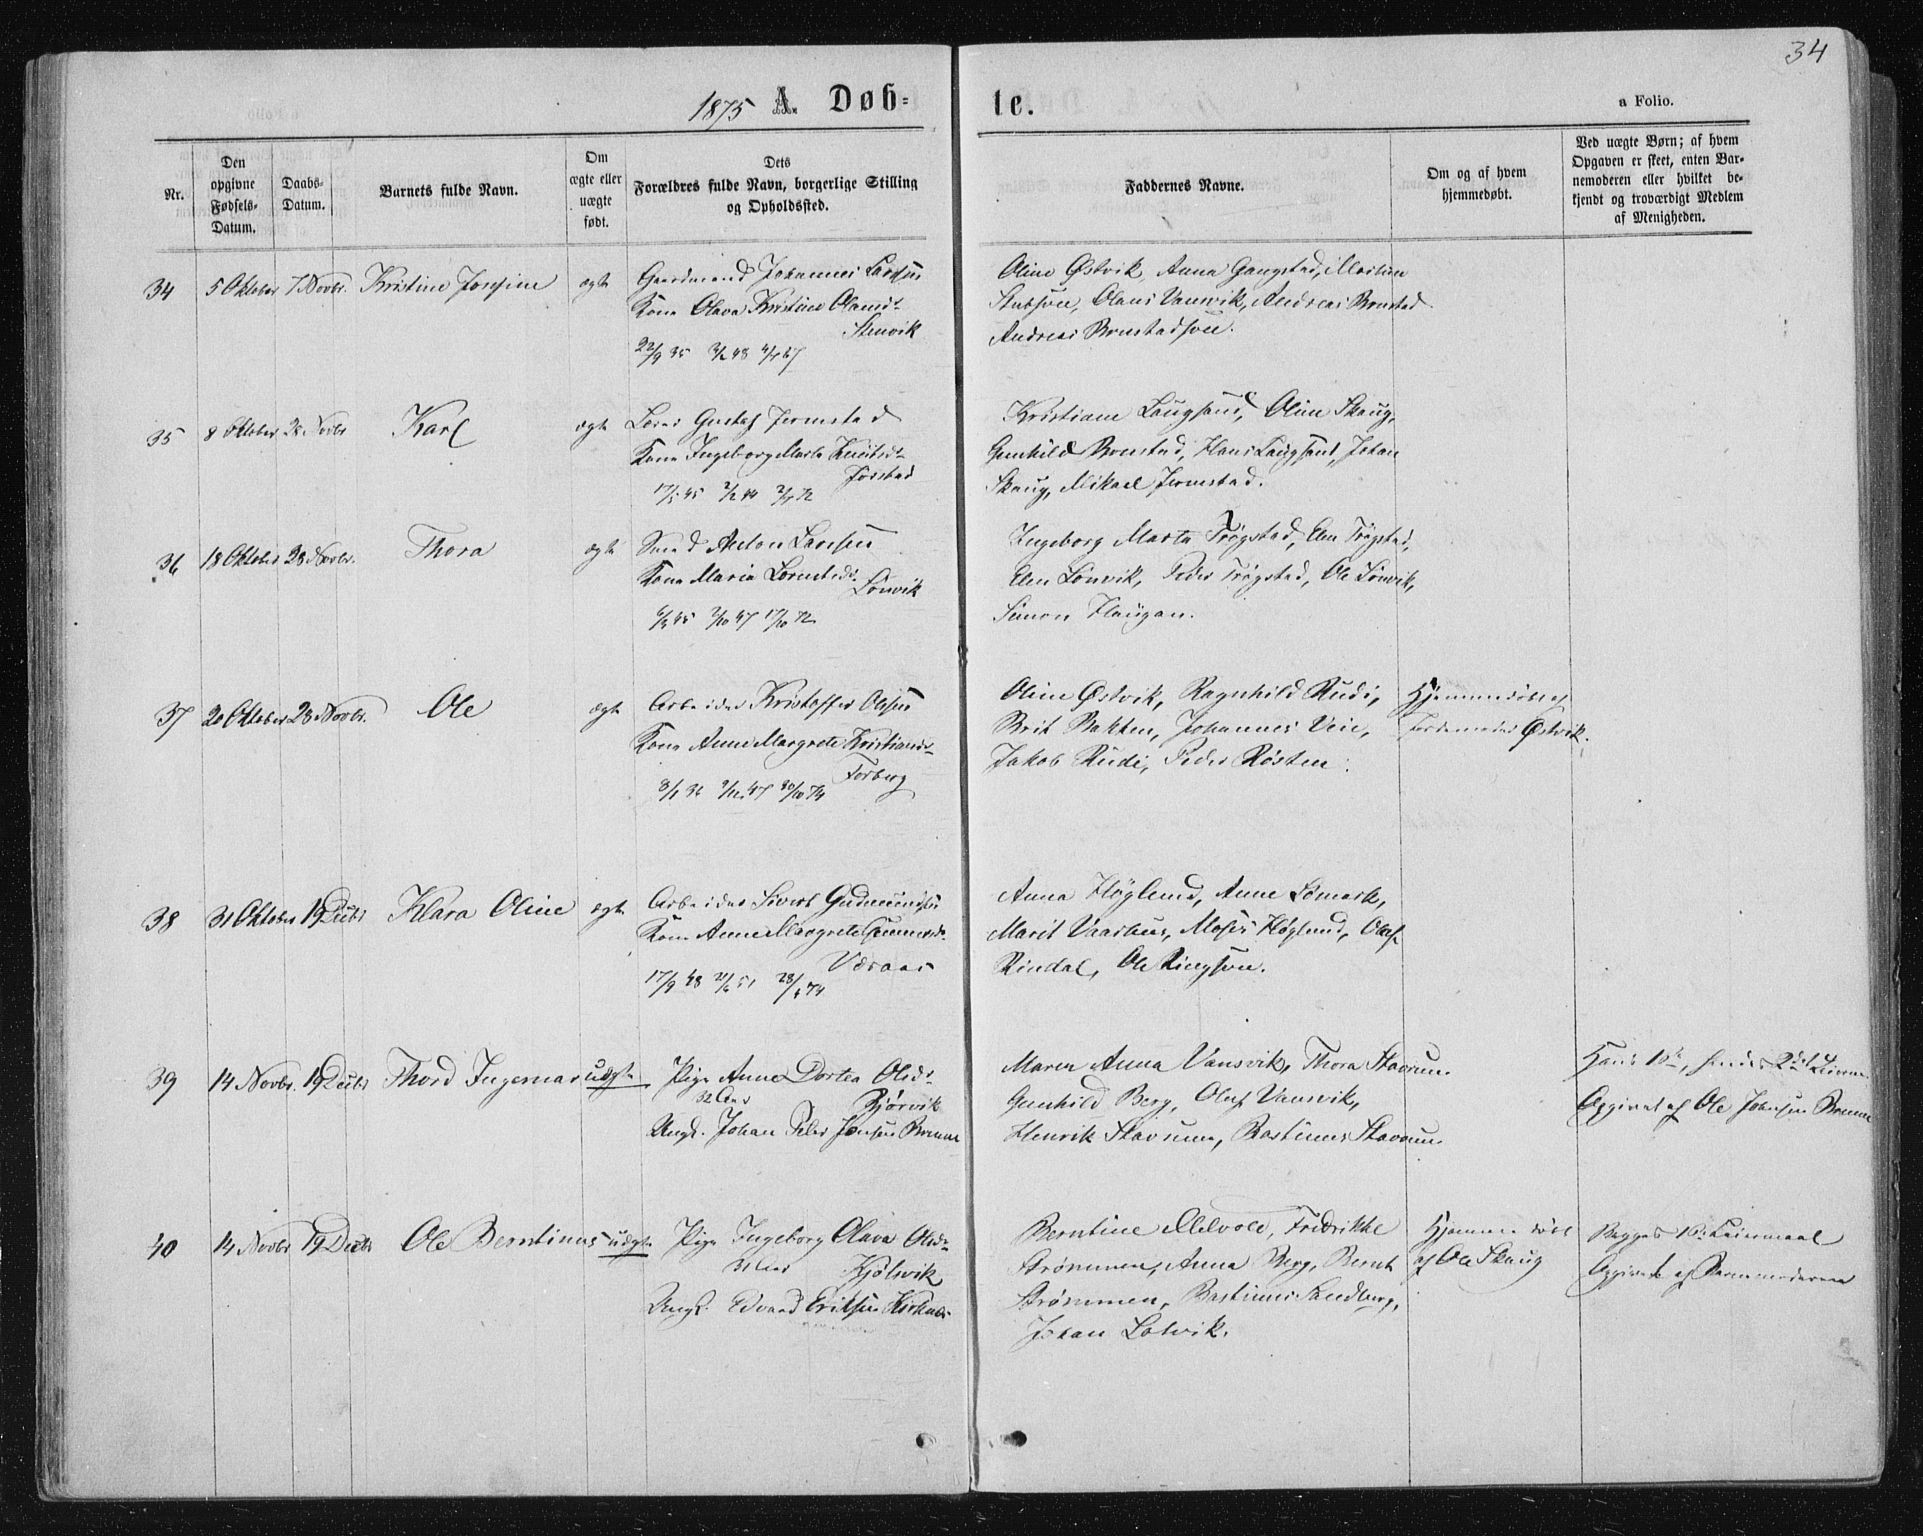 34
1875 A. Døb=
te.
a Folio.
Nr.
Den opgivne Fødsels-Datum.
Daabs-Datum.
Barnets fulde Navn.
Om ægte eller uægte født.
Dets Forældres fulde Navn, borgerlige Stilling og Opholdssted.
Faddernes Navne.
Om og af hvem hjemmedøbt.
Ved uægte Børn; af hvem Opgaven er skeet, enten Barnemoderen eller hvilket bekjendt og troværdigt Medlem af Menigheden.
34 5 Oktober 7 Novbr. Kristine Josefine ægte Gaardmand Johannes Larssen
Kone Olava Kristine Olausd:
Stenvik
Oline Østvik, Anna Gangstad,
Olaus Vansvik, Andreas Bonstad
Andreas
35 8 Oktober 28 Novbr Karl ægte Gustaf Jermstad
Kone Ingeborg Marta Knutsd:
Kristiane Laugsand, Oline Skaug,
Gunhild Hans Laugsand, Johan
Skaug, Mikael Jermstad.
36 18 Oktober 28 Novbr. Thora ægte Smed Anton Larssen
Kone Maria
Lønvik
Ingeborg Marta Trøgstad, Elen Trøgstad,
Elen Lønvik, Peder Trøgstad, Ole Lønvik,
Simon Haugan.
37 20 Oktober 28 Novbr. Ole ægte Arbeider Kristoffer Olsen
Kone Anne Margrete Kristiansd:
Forberg
Oline Østvik, Ragnhild Rudi,
Brit Bakken, Johannes Veie,
Jakob Rudi, Peder Røsten.
Hjemmedøbt af
Jordemoder Østvik.
38 31 Oktober 19 Decbr Klara Oline ægte Arbeider Sivert Gudmundsen
Kone Anne Margrete Gunnersd:
Anna Høglund, Anne
Marit Vaarhus, Moses Høglund, Olaf
Rindal, Ole Ringsven.
39 14 Novbr. 19 Decbr Thord Ingemar uægte Pige Anne Dortea Olsd:
Bjørvik
Ungk. Johan Peter Jonsen
Maren Anna Vansvik, Thora Stavrum.
Gunhild Berg, Olaf Vansvik,
Henrik Stavrum, Bastinus Stavrum.
Opgivet af Ole Johnsen
40 14 Novbr 19 Decbr Ole Berntinus uægte Pige Ingeborg Olava Olsd:
Kjølsvik
Ungk. Edvard Eriksen
Berntine Melvold, Fredrikke
Strømmen, Anna Berg, Bernt
Strømmen, Bastinus Sandberg,
Johan
Hjemmedøbt
af Ole Skaug
Begges 1ste Leiermaal
Opgivet af Barnemoderen